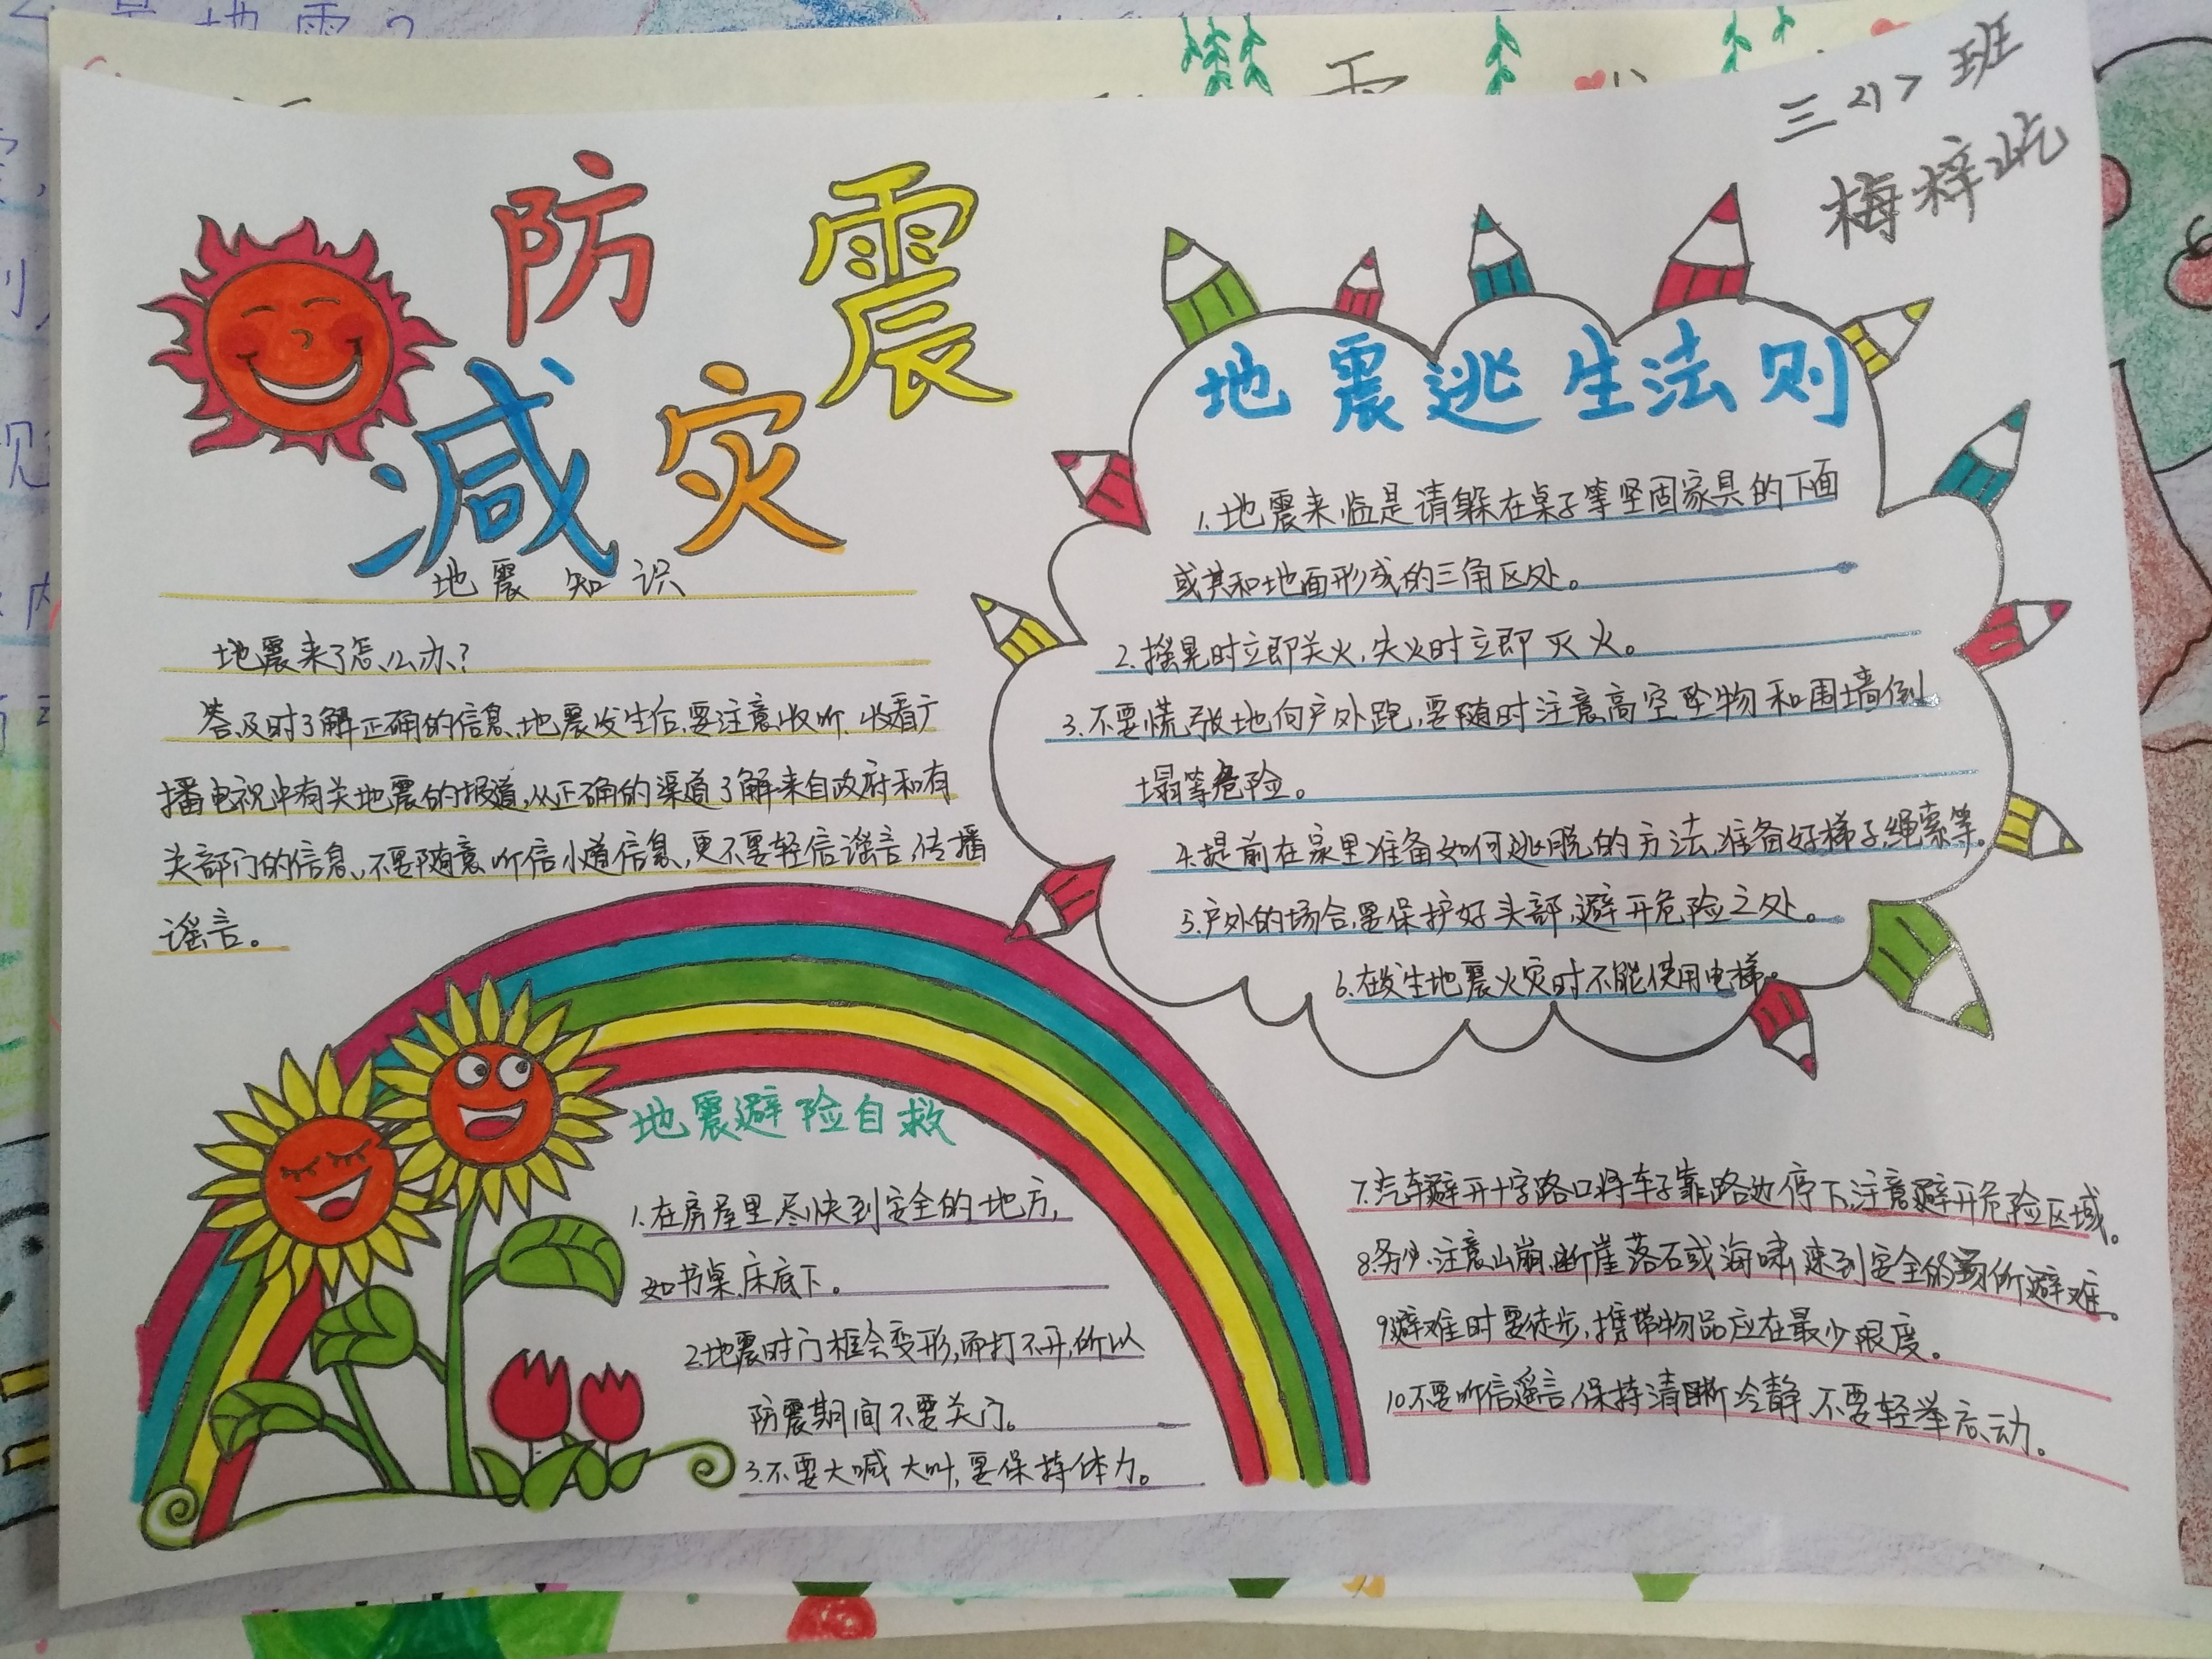 三<1>班
梅梓屹
防震
减灾
地震知识
地震来了怎么办?
答:及时了解正确的信息、地震发生后,要注意收听、收看广
播电视中有关地震的报道,从正确的渠道了解来自政府和有
关部门的信息、不要随意听信小道信息,更不要轻信谣言,传播
谣言。
地震逃生法则
1.地震来临是请躲在桌子等坚固家具的下面
或其和地面形成的三角区处。
2.摇晃时立即关火,失火时立即灭火。
3.不要慌张地向户外跑,要随时注意高空坠物和围墙倒
塌等危险。
4.提前在家里准备如何逃脱的方法,准备好梯子,绳索等。
5.户外的场合,要保护好头部,避开危险之处。
6.在发生地震火灾时不能使用电梯。
7.汽车避开十字路口将车子靠路边停下,注意避开危险区域。
8.务必注意山崩,断崖落石或海啸,速到安全的场所避难。
9.避难时要徒步,携带物品应在最少限度。
10.不要听信谣言,保持清晰冷静,不要轻举妄动。
地震避险自救
1.在房屋里尽快到安全的地方,
如书桌、床底下。
2.地震时门框会变形,而打不开,所以
防震期间不要关门。
3.不要大喊大叫,要保持体力。